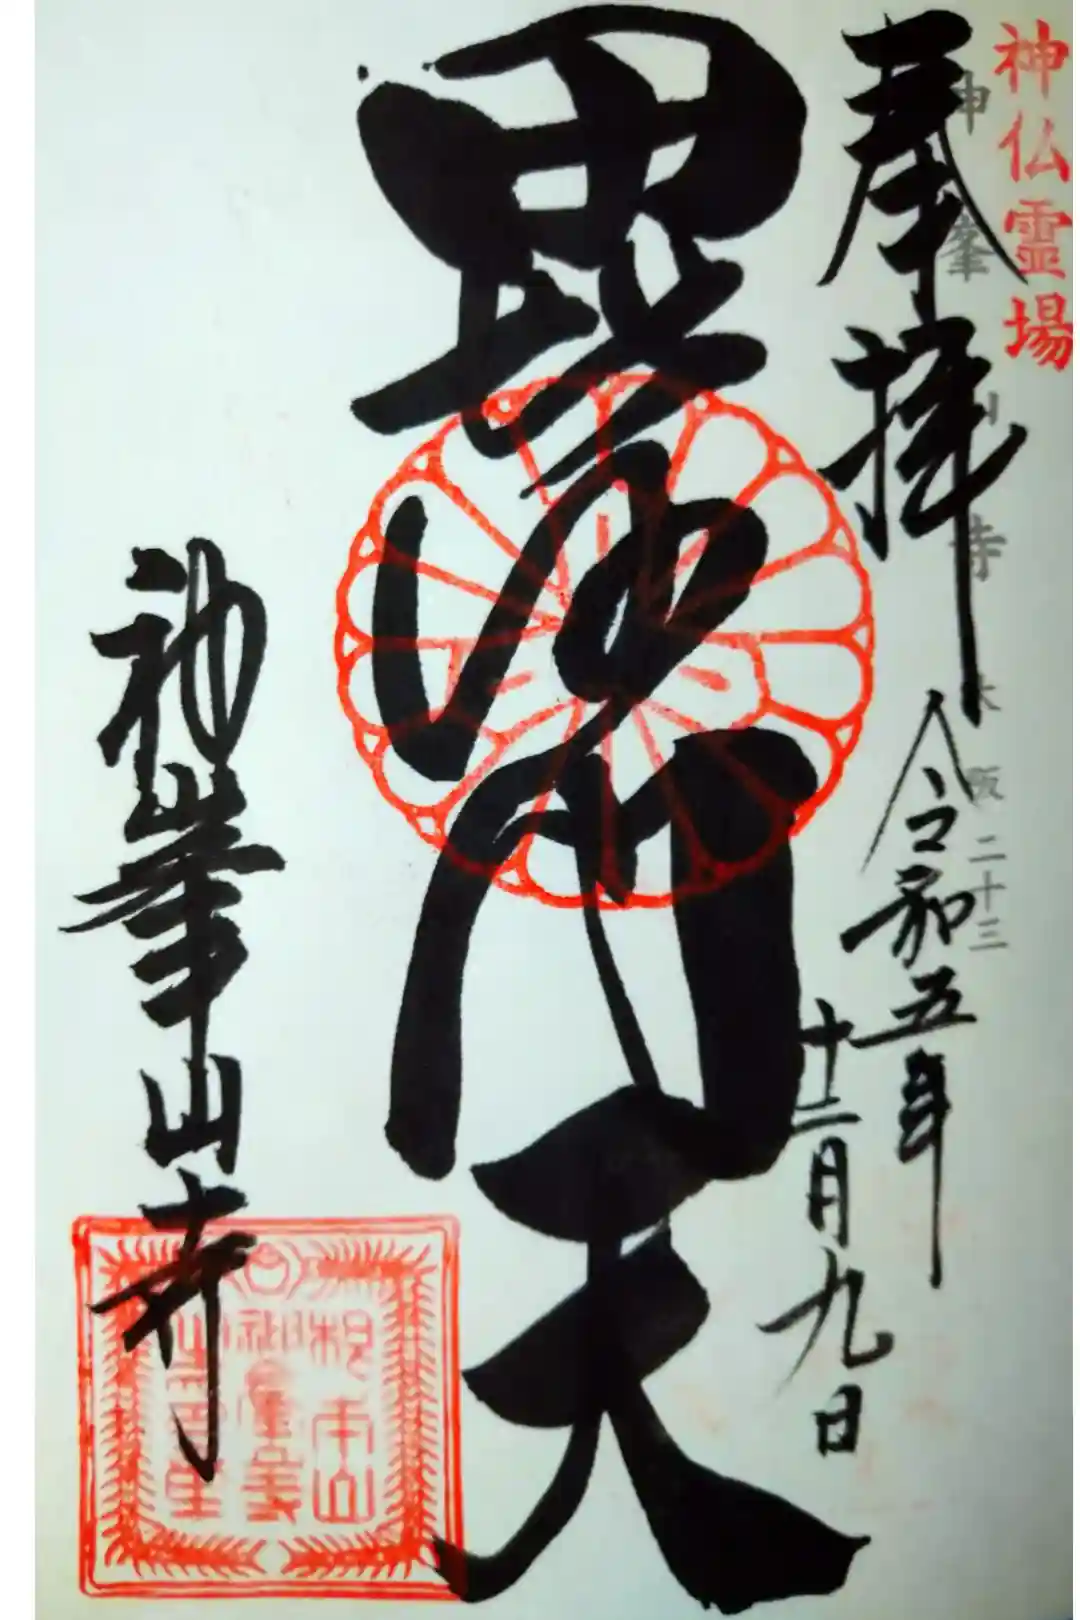 神仏霊場
神峯山寺 大阪二十三
奉拝
令和五年
十二月九日
毘沙門天
神峯山寺
根本山